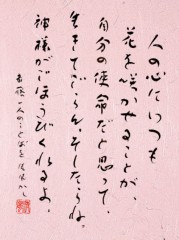 人の心にいつも
花を咲かせることが、
自分の使命だと思って、
生きてごらん。そしたらね、
神様がごほうびくれるよ。
斎藤一人のことばを